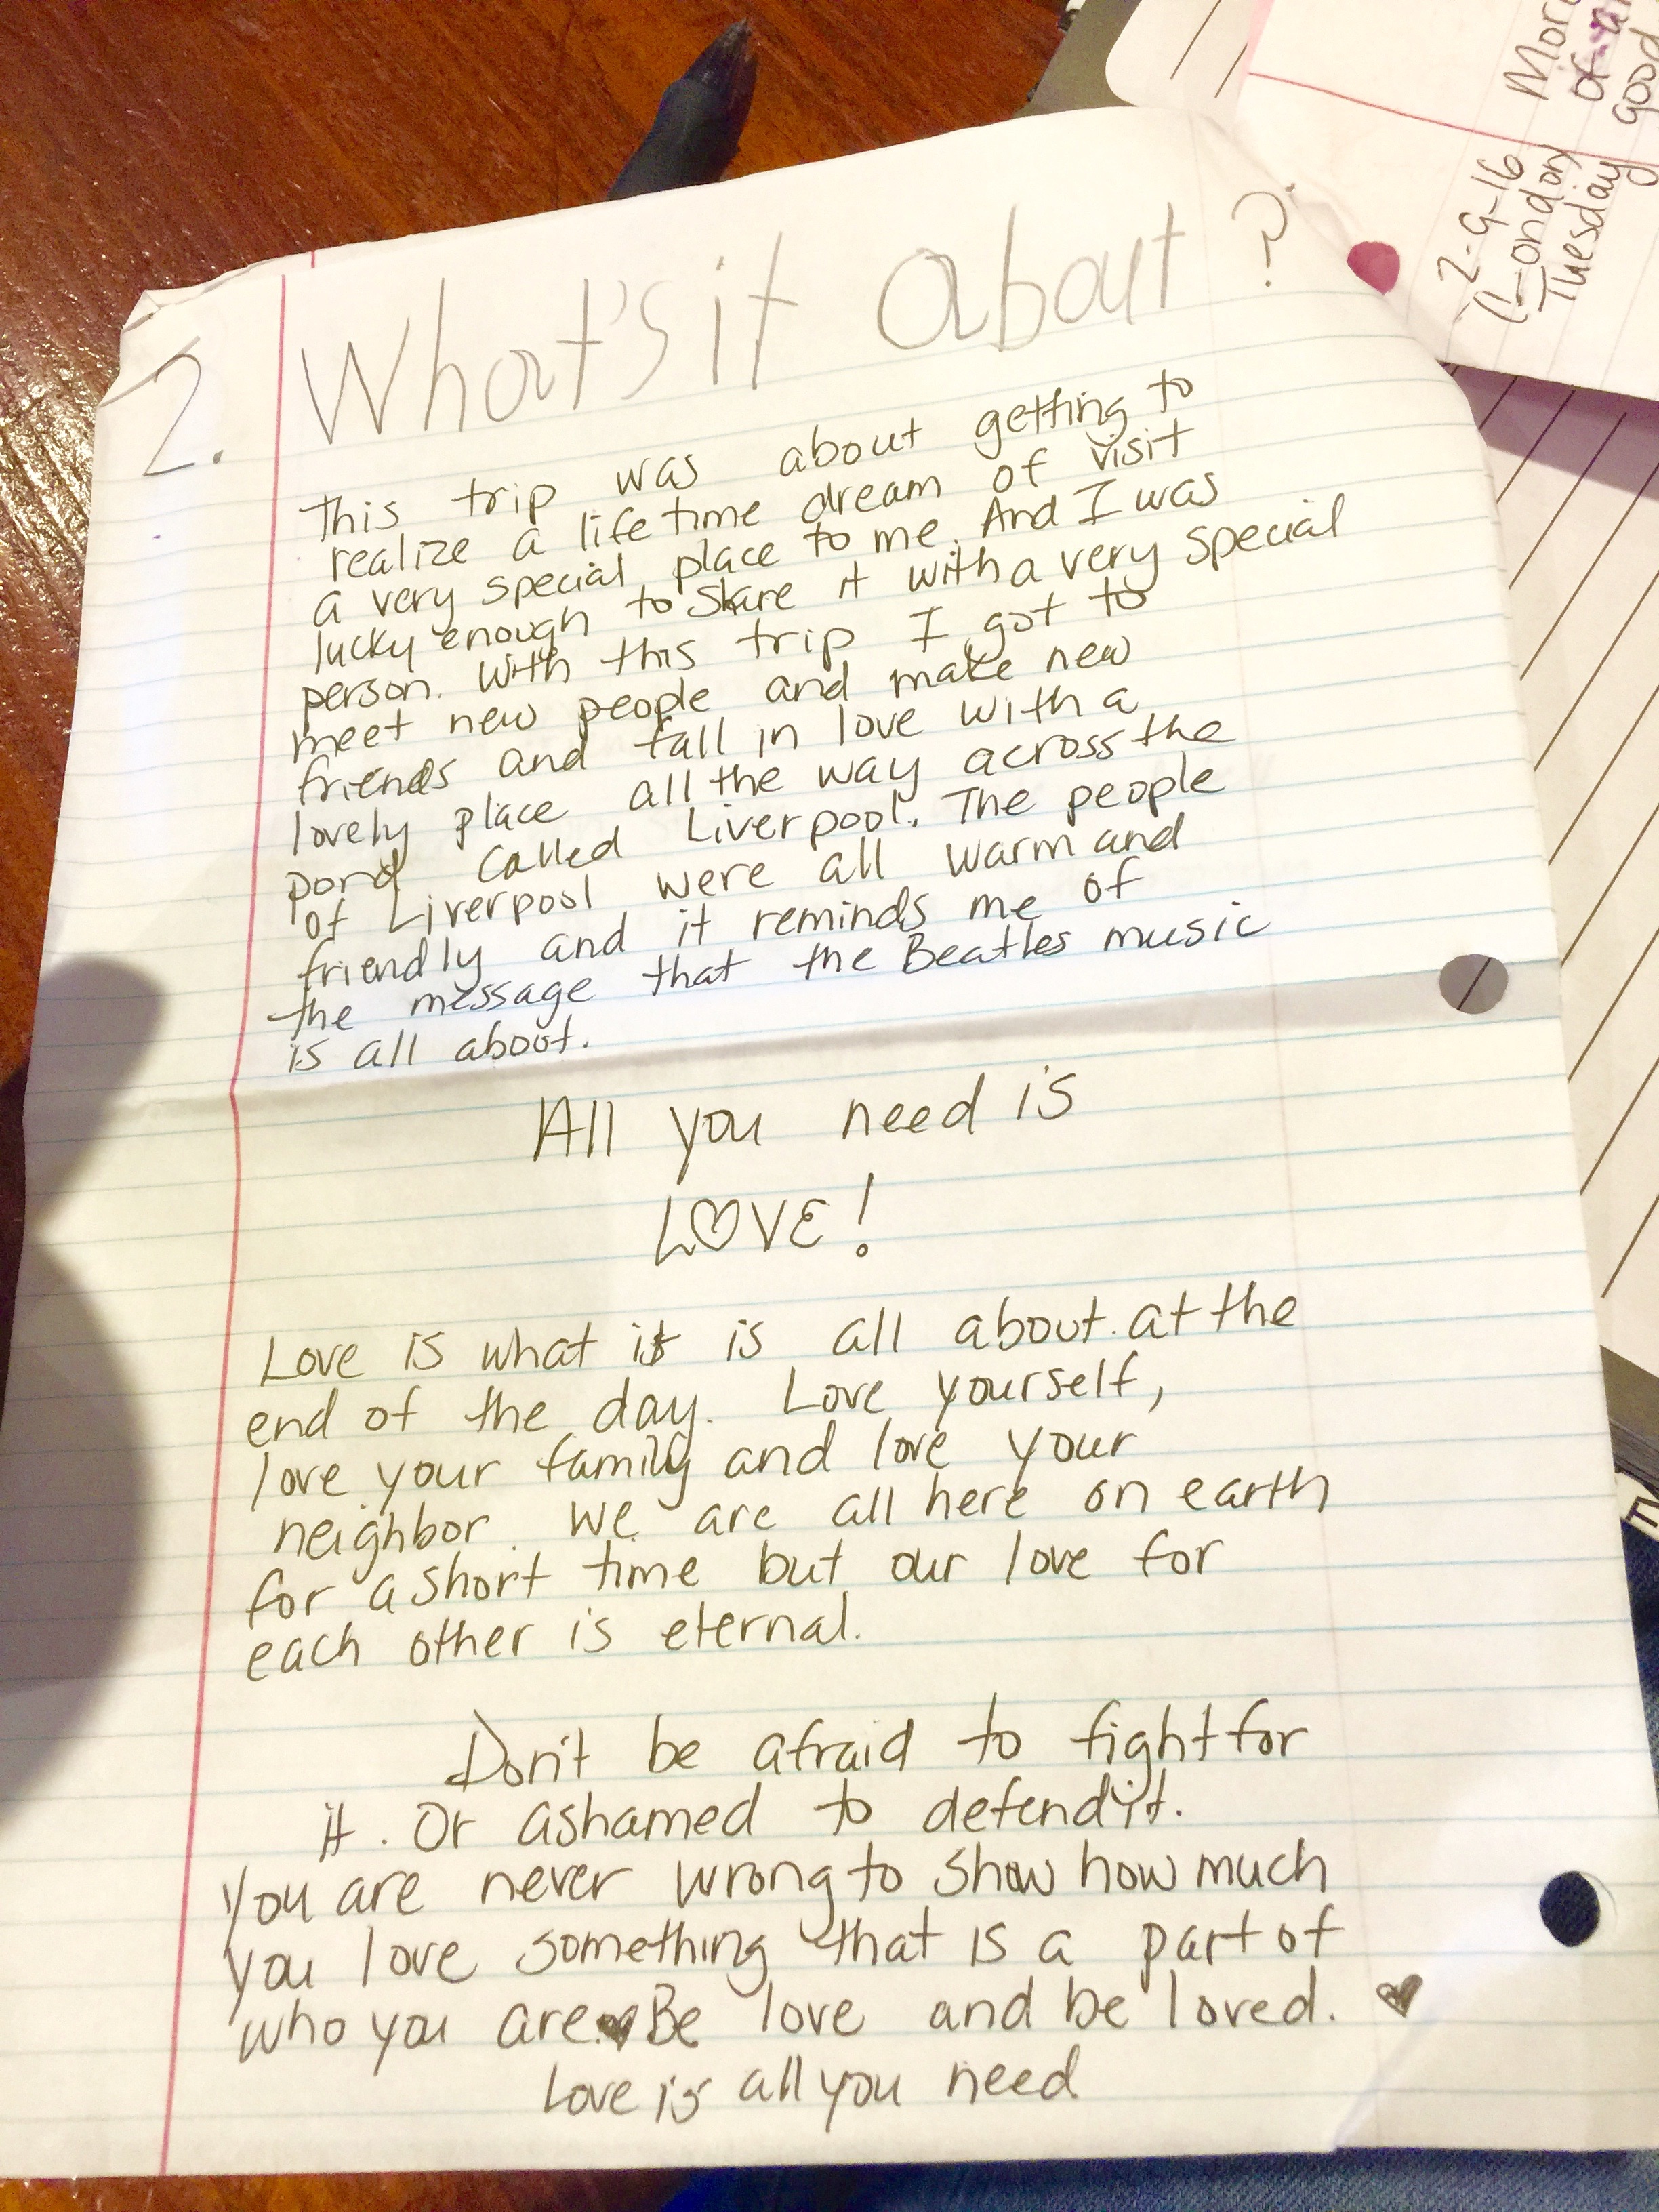 2. What's it About?
This trip was about getting to
realize a life time dream of visit
a very special place to me. And I was
lucky enough to share it with a very special
person. With this trip I got to
meet new people and make new
friends and fall in love with a
lovely place all the way across the
pond called Liverpool. The people
of Liverpool were all warm and
friendly and it reminds me of
the message that the Beatles music
is all about.
All you need is
LOVE!
Love is what it is all about at the
end of the day. Love yourself,
love your family and love your
neighbor. We are all here on earth
for a short time but our love for
each other is eternal.
Don't be afraid to fight for
it. Or ashamed to defend it.
You are never wrong to show how much
you love something that is a part of
who you are. ♥ Be love and be loved. ♥
Love is all you need
2-9-16
London
Tuesday
of
good